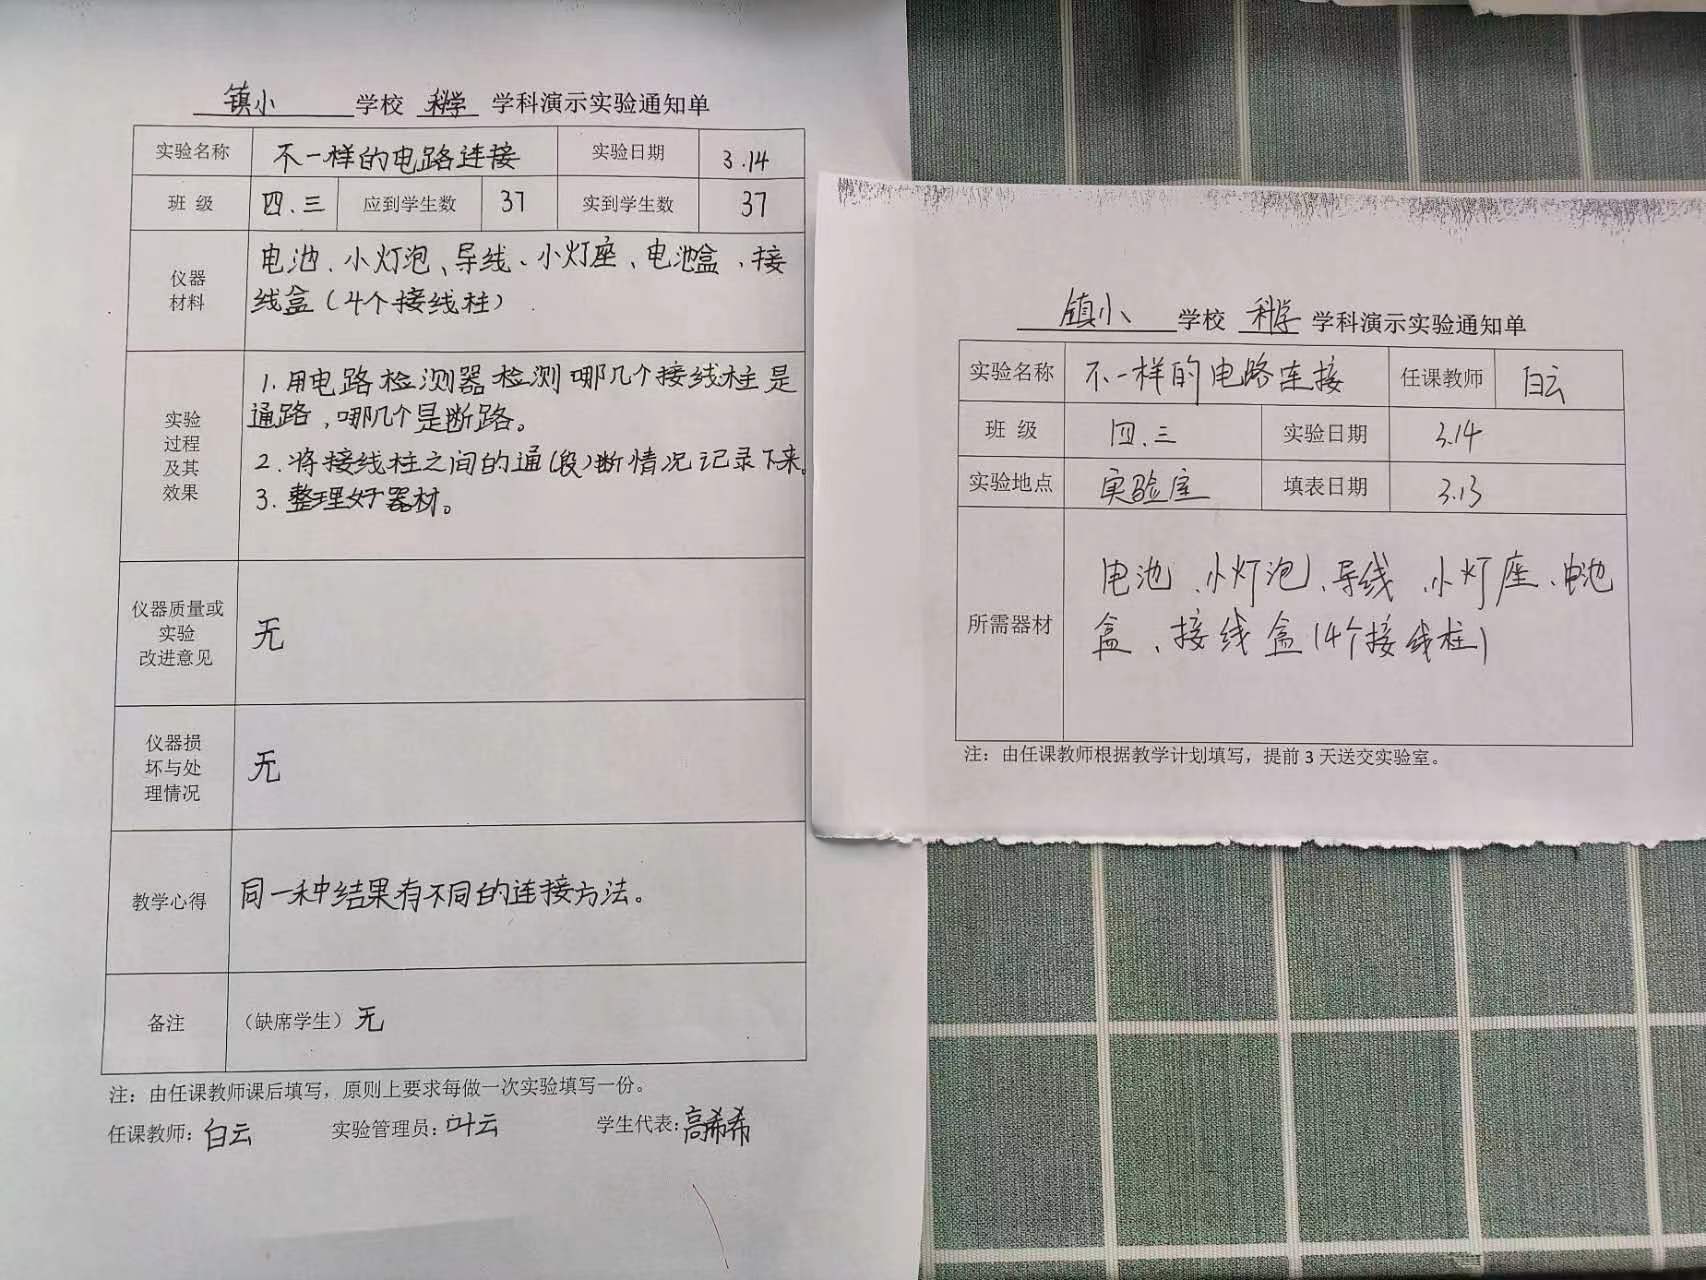 镇小 学校 科学 学科演示实验通知单
实验名称 不一样的电路连接 实验日期 3.14
班 级 四.三 应到学生数 37 实到学生数 37
仪器
材料
电池、小灯泡、导线、小灯座、电池盒、接
线盒(4个接线柱)
实验
过程
及其
效果
1.用电路检测器检测哪几个接线柱是
通路,哪几个是断路。
2.将接线柱之间的通(段)断情况记录下来。
3.整理好器材。
仪器质量或
实验
改进意见
无
仪器损
坏与处
理情况
无
教学心得 同一种结果有不同的连接方法。
备注 (缺席学生)无
注:由任课教师课后填写,原则上要求每做一次实验填写一份。
任课教师:白云 实验管理员:叶云 学生代表:高希希
镇小 学校 科学 学科演示实验通知单
实验名称 不一样的电路连接 任课教师 白云
班 级 四.三 实验日期 3.14
实验地点 实验室 填表日期 3.13
所需器材
电池、小灯泡、导线、小灯座、电池
盒、接线盒(4个接线柱)
注:由任课教师根据教学计划填写,提前3天送交实验室。